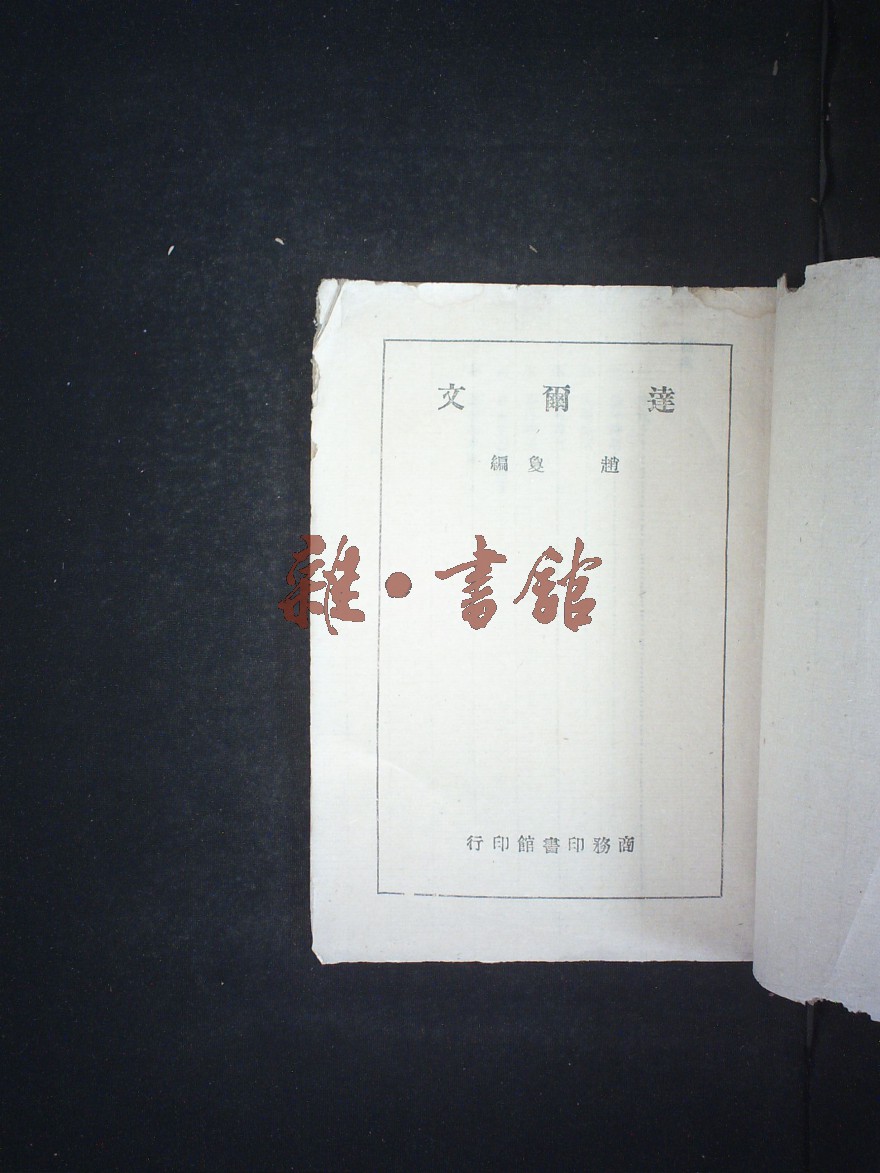 達爾文
趙 編
雜·書館
商務印書館印行